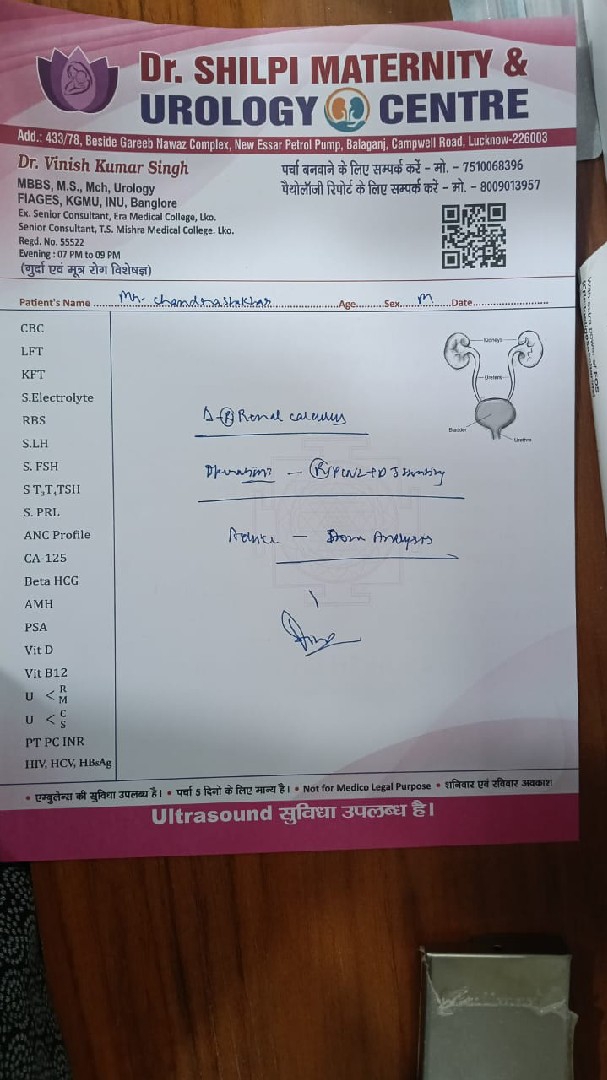 Dr. SHILPI MATERNITY &
UROLOGY CENTRE
Add.: 433/78, Beside Gareeb Nawaz Complex, New Essar Petrol Pump, Balaganj, Campwell Road, Lucknow-226003
Dr. Vinish Kumar Singh
MBBS, M.S., Mch, Urology
FIAGES, KGMU, INU, Banglore
Ex. Senior Consultant, Era Medical College, Lko.
Senior Consultant, T.S. Mishra Medical College, Lko.
Regd. No. 55522
Evening : 07 PM to 09 PM
(गुर्दा एवं मूत्र रोग विशेषज्ञ)
पर्चा बनवाने के लिए सम्पर्क करें - मो. - 7510068396
पैथोलॉजी रिपोर्ट के लिए सम्पर्क करें - मो. - 8009013957
Patient's Name Mr. Chandrashekhar Age Sex M Date
CBC
LFT
KFT
S.Electrolyte
RBS
S.LH
S. FSH
S T,T,TSH
S. PRL
ANC Profile
CA-125
Beta HCG
AMH
PSA
Vit D
Vit B12
U < R M
U < C S
PT PC INR
HIV, HCV, HBsAg
Kidneys
Ureters
Bladder
Urethra
Δ (R) Renal calculus
Operation - (R) PCNL + DJ Stenting
Advice - Stone Analysis
• एम्बुलेन्स की सुविधा उपलब्ध है। • पर्चा 5 दिनो के लिए मान्य है। • Not for Medico Legal Purpose • शनिवार एवं रविवार अवकाश
Ultrasound सुविधा उपलब्ध है।